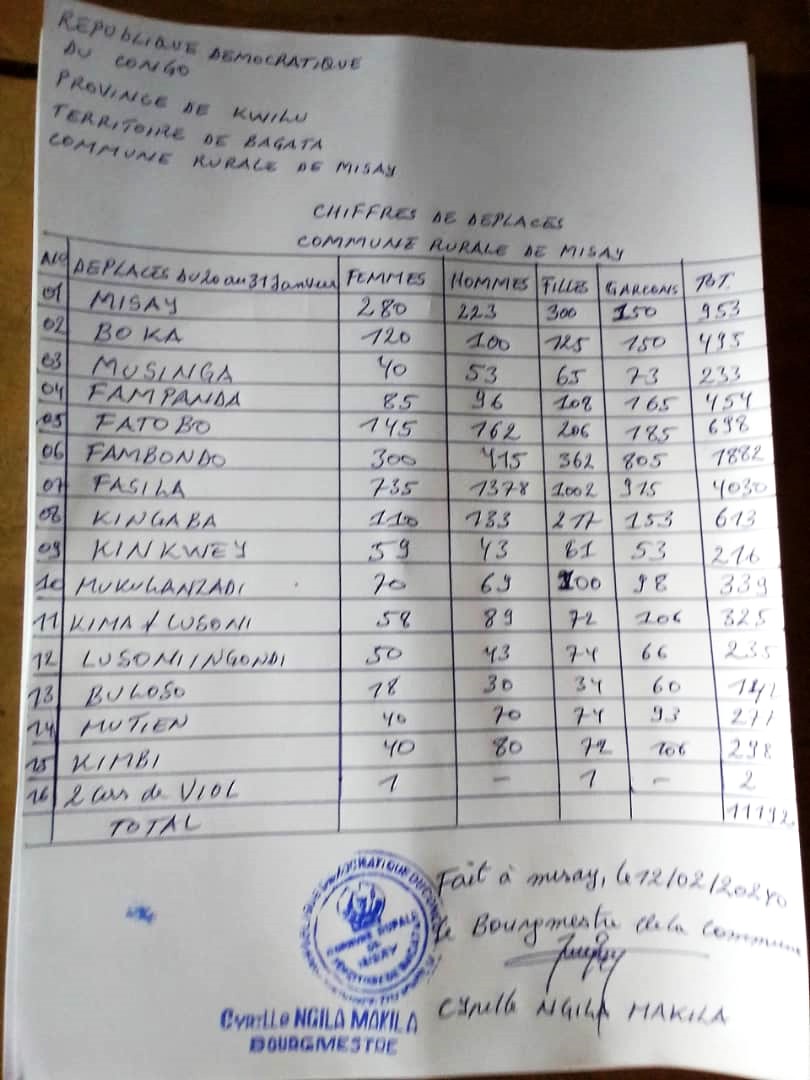 REPUBLIQUE DEMOCRATIQUE
DU CONGO
PROVINCE DE KWILU
TERRITOIRE DE BAGATA
COMMUNE RURALE DE MISAY
CHIFFRES DE DEPLACES
COMMUNE RURALE DE MISAY
N° DEPLACES DU 20 au 31 Janvier FEMMES HOMMES FILLES GARCONS TOT.
01 MISAY 280 223 300 150 953
02 BOKA 120 100 125 150 495
03 MUSINGA 40 53 65 73 233
04 FAMPANDA 85 96 108 165 454
05 FATOBO 145 162 206 185 698
06 FAMBONDO 300 415 362 805 1882
07 FASILA 735 1378 1002 915 4030
08 KINGABA 110 133 217 153 613
09 KINKWEY 59 43 61 53 216
10 MUKULANZADI 70 69 100 98 339
11 KIMA / LUSONI 58 89 72 106 325
12 LUSONI/NGONDI 50 43 74 66 235
13 BULOSO 18 30 34 60 142
14 MUTIEN 40 70 74 93 277
15 KIMBI 40 80 72 106 298
16 2 cas de VIOL 1 – 1 – 2
TOTAL 11192
Fait à misay, le 12/02/2024
Le Bourgmestre de la Commune
COMMUNE RURALE
DE
MISAY
TERRITOIRE DE BAGATA
Cyrille NGILA MAKILA
Cyrille NGILA MAKILA
BOURGMESTRE